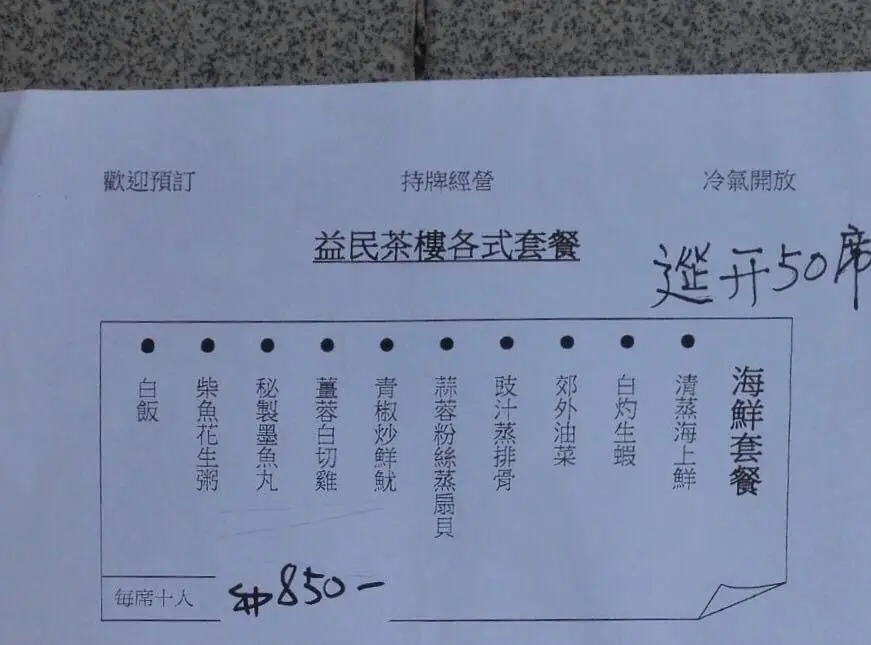 歡迎預訂 持牌經營 冷氣開放
益民茶樓各式套餐
筵开50席
海鮮套餐
清蒸海上鮮
白灼生蝦
郊外油菜
豉汁蒸排骨
蒜蓉粉絲蒸扇貝
青椒炒鮮魷
薑蓉白切雞
秘製墨魚丸
柴魚花生粥
白飯
每席十人
850-